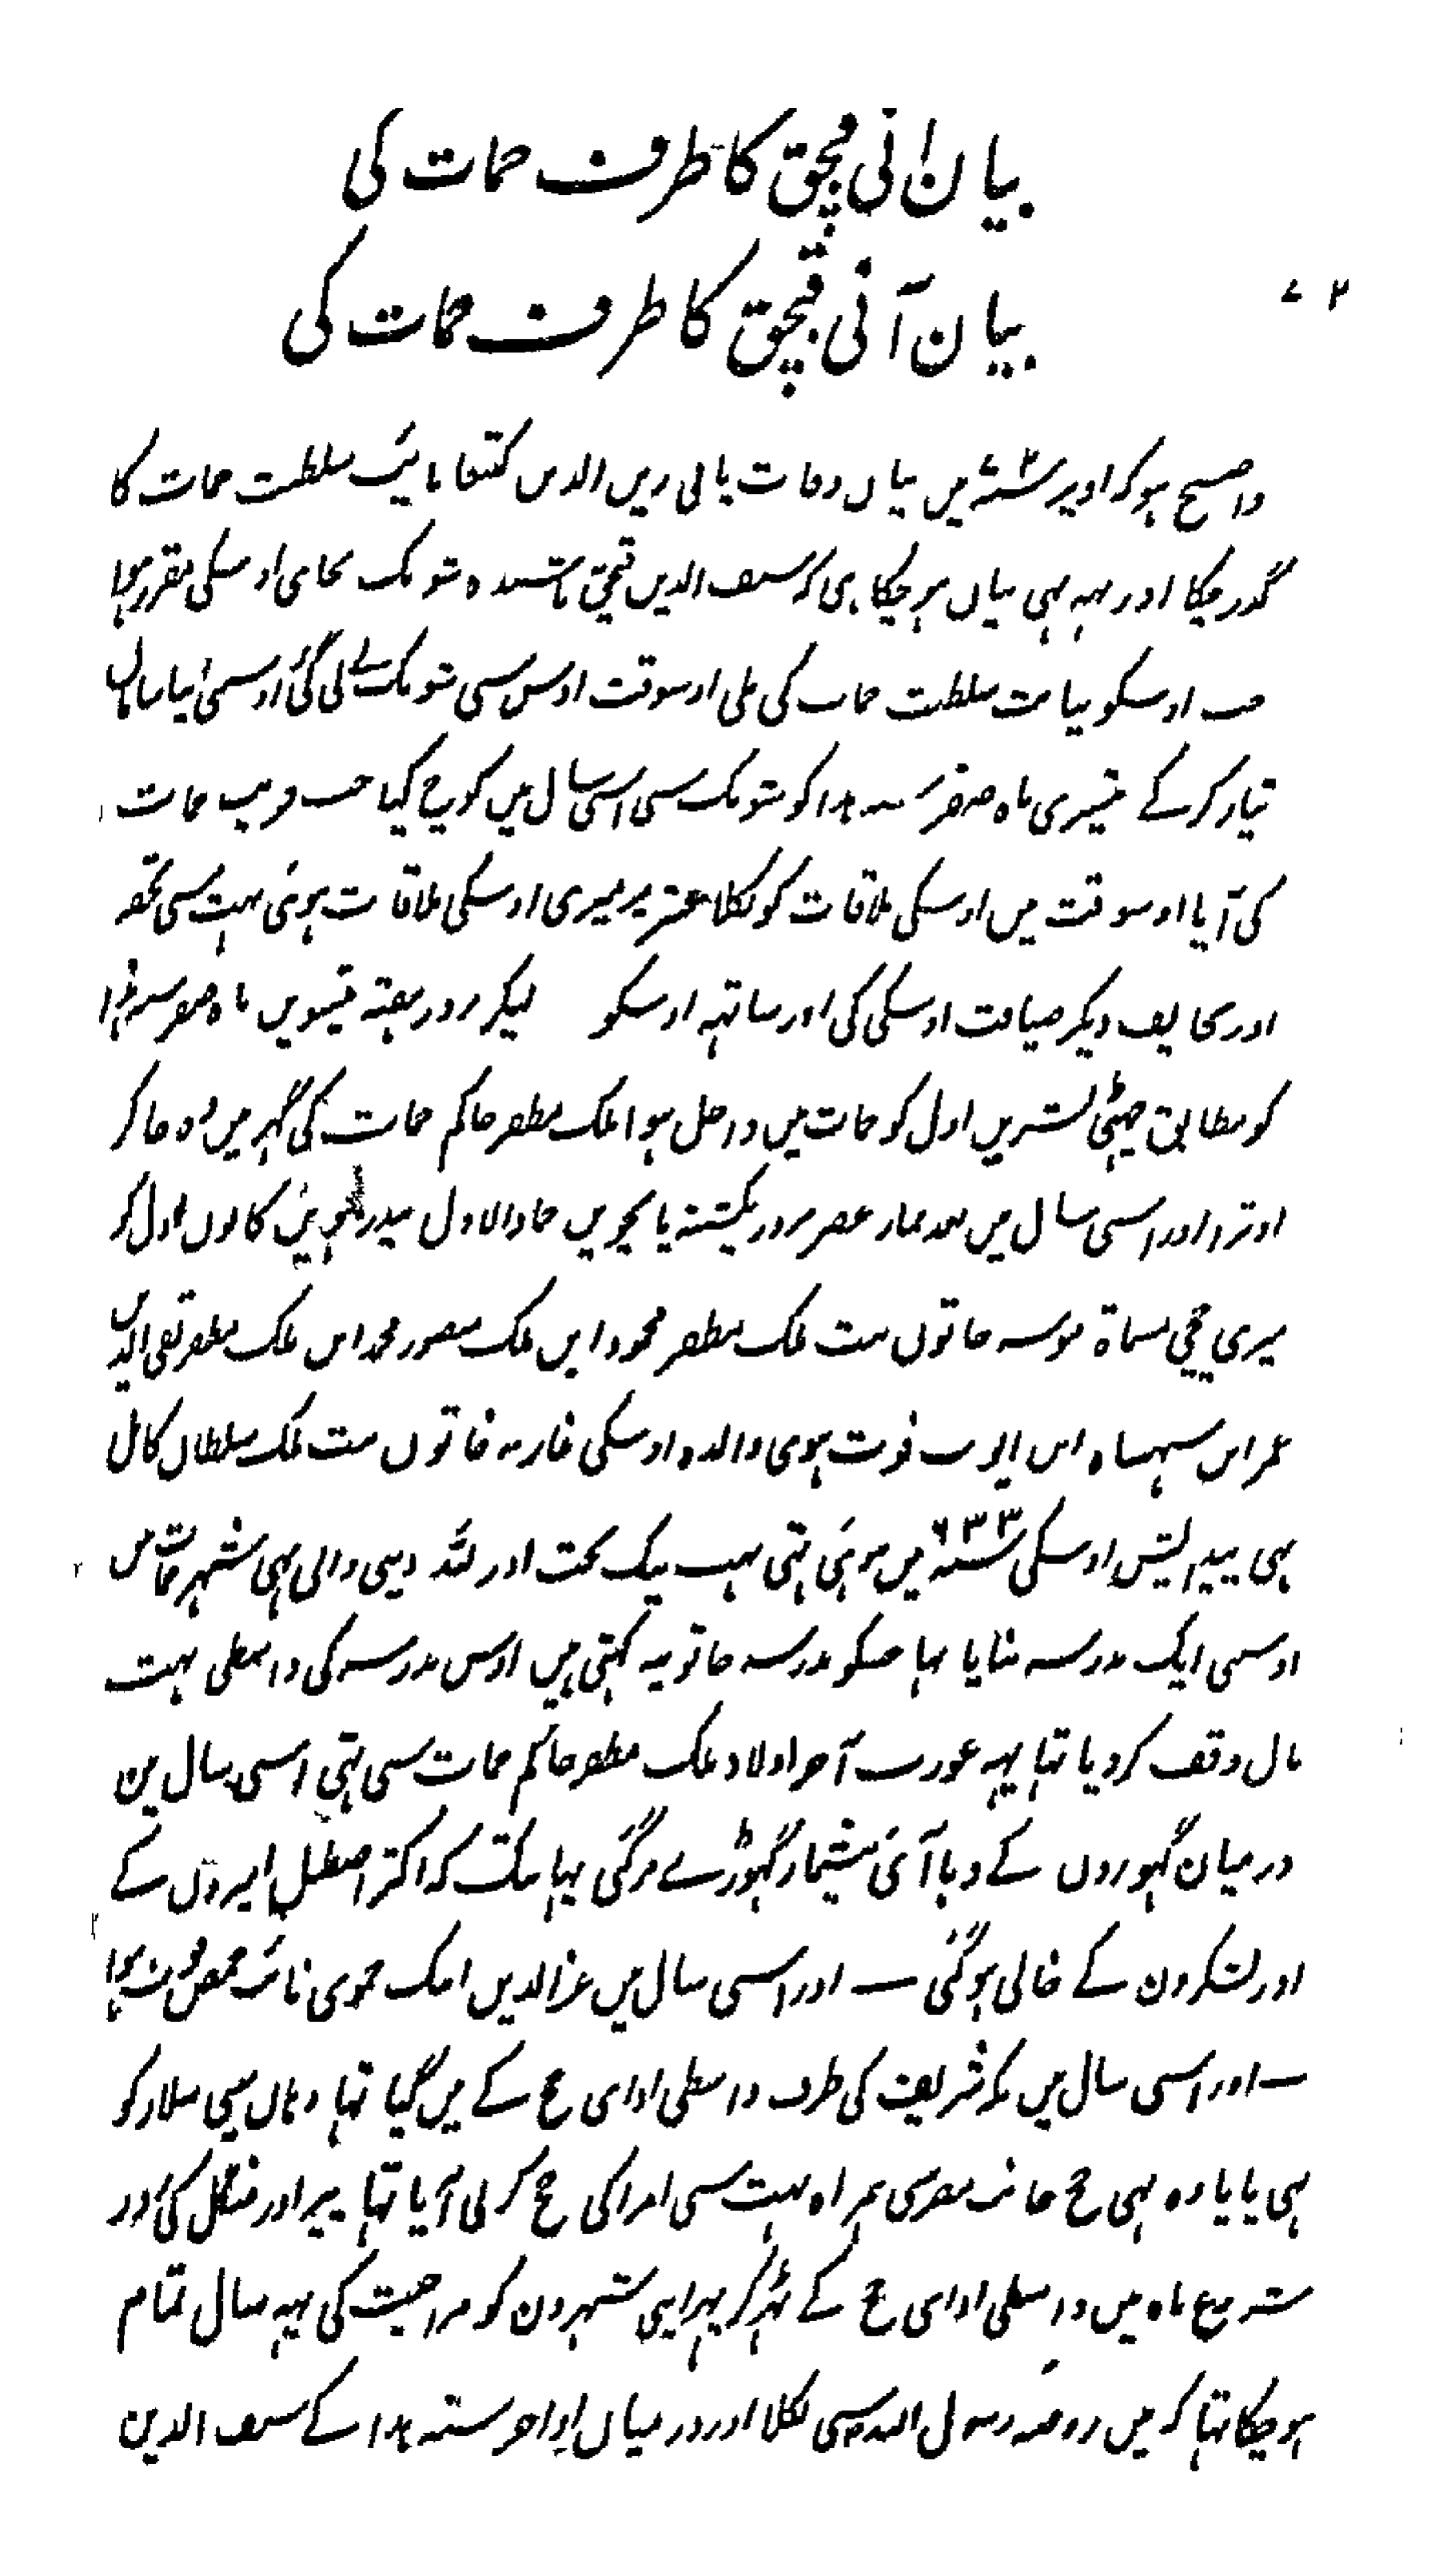 بیان انی قبچق کا طرف حمات کی
۷۲
بیان آنی قبچق کا طرف حمات کی
واضح ہو کہ اوپر سنہ میں بیان وفات پانی زین الدین کتبغا نائب سلطنت حمات کا
گذر چکا اور یہہ بہی بیان ہو چکا ہی کہ سیف الدین قبچق باشندہ شوبک بجای اوسکی مقرر ہوا
جب اوسکو نیابت سلطنت حمات کی ملی اوسوقت اوس سی شوبک لے لی گئی اوسنی اپنا سامان
تیار کر کے تیسری ماہ صفر سنہ ہذا کو شوبک سی اسی سال میں کوچ کیا جب قریب حمات
کی آیا اوسوقت میں اوسکی ملاقات کو نکلا عنتر پر میری اوسکی ملاقات ہوئی بہت سی تحفہ
اور تحایف دیکر ضیافت اوسکی کی اور ساتہہ اوسکو لیکر روز ہفتہ تیسویں ماہ صفر سنہ ہذا
کو مطابق چہٹی تشرین اول کو حمات میں داخل ہوا ملک مظفر حاکم حمات کی گہر میں وہ جا کر
اوترا اور اسی سال میں بعد نماز عصر بروز یکشنبہ پانچویں جماد الاول پندرہویں کانون اول کو
میری پہوپی مسماۃ مونسہ خاتون بنت ملک مظفر محمود ابن ملک منصور محمد ابن ملک مظفر تقی الدین
عمر ابن شہنشاہ ابن ایوب فوت ہوی والدہ اوسکی غازیہ خاتون بنت ملک سلطان کامل
ہی پیدایش اوسکی سنہ ۶۳۳ میں ہوئی تہی بہت نیک بخت اور للہ دینی والی تہی شہر حمات میں
اوسنی ایک مدرسہ بنایا تہا جسکو مدرسہ خاتونیہ کہتی ہیں اوس مدرسہ کی واسطی بہت
مال وقف کر دیا تہا یہہ عورت آخر اولاد ملک مظفر حاکم حمات سی تہی اسی سال مین
درمیان گہوروں کے وبا آئی بیشمار گہوڑے مر گئی یہانتک کہ اکثر اصطبل امیروں کے
اور لشکرون کے خالی ہو گئی ۔ اور اسی سال میں عز الدین ایبک حموی نائب حمص فوت ہوا
۔ اور اسی سال میں مکہ شریف کی طرف واسطی ادای حج کے میں گیا تہا وہاں میں سلار کو
بہی پایا وہ بہی حج جانب مصر سی ہمراہ بہت سی امرا کی حج کرنی آیا تہا پیر اور منگل کی روز
شروع ماہ میں واسطی ادای حج کے ٹہر کر پہر اپنی شہرون کو مراجعت کی یہہ سال تمام
ہو چکا تہا کہ میں روضہ رسول اللہ سی نکلا اور درمیان اواخر سنہ ہذا کے سیف الدین